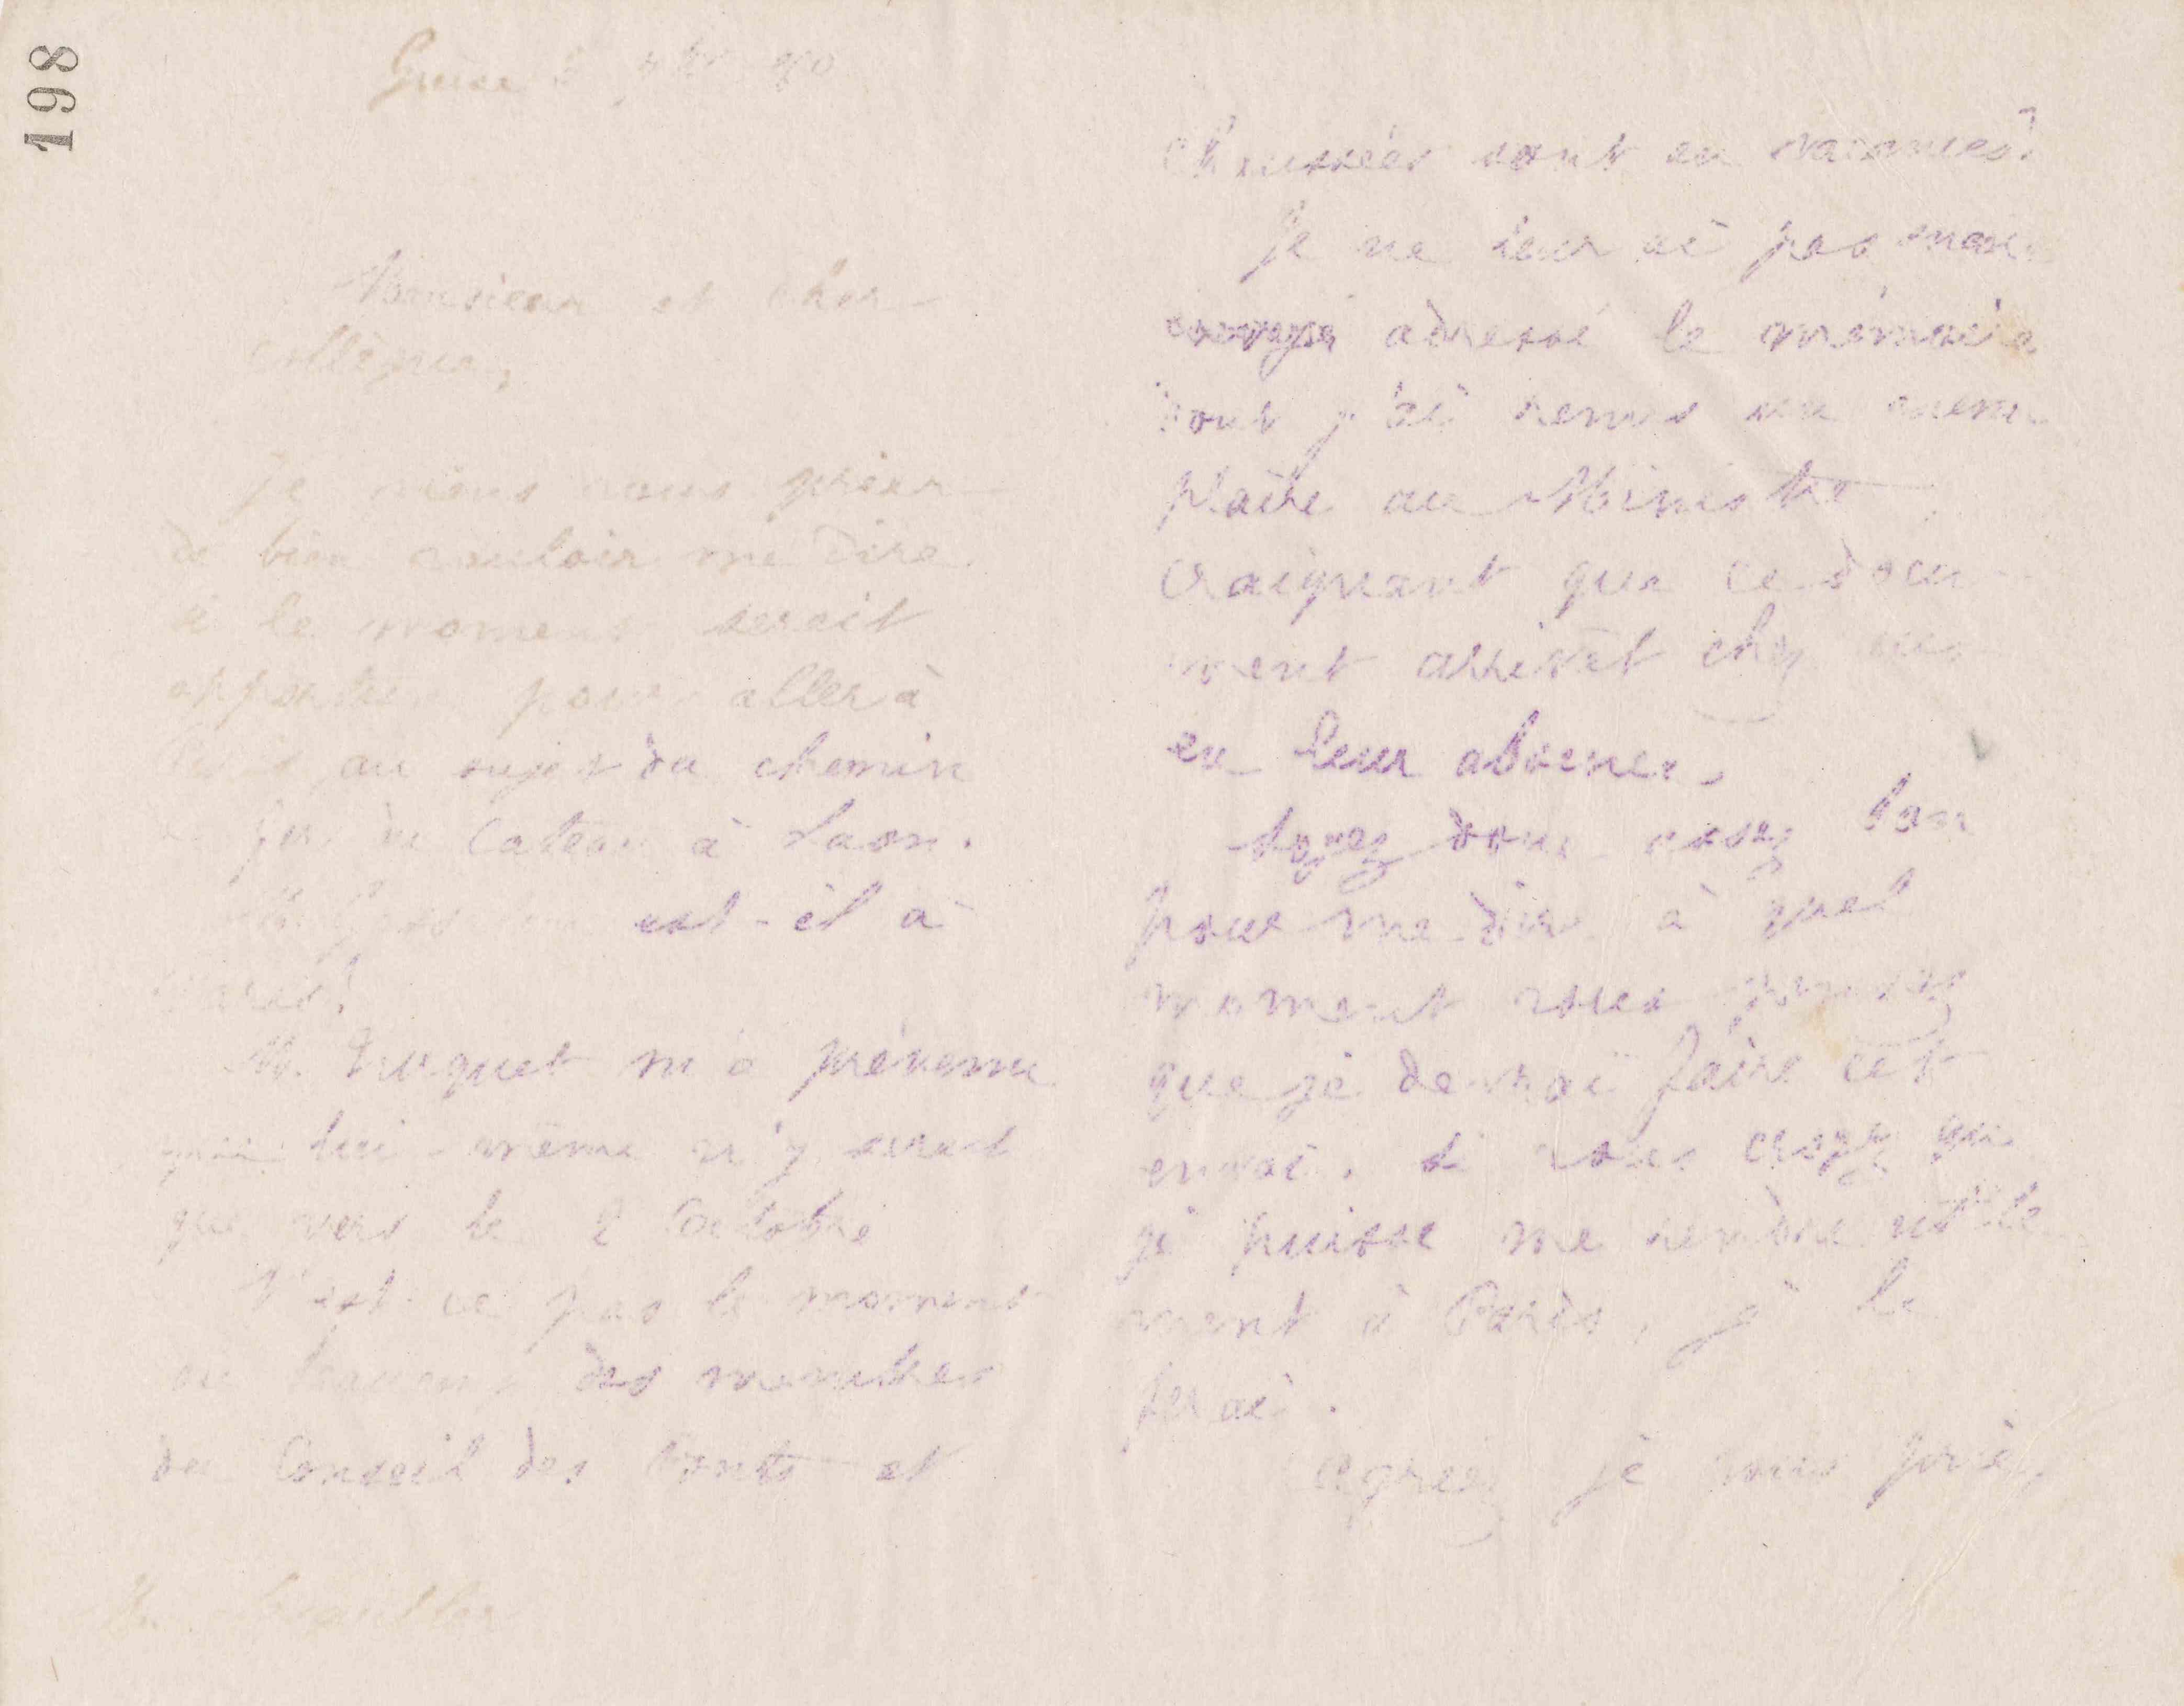 198
Guise
Monsieur et cher
collègue,
Je viens vous prier
de bien vouloir me dire
si le moment serait
opportun pour aller à
Paris au sujet du chemin
de fer du Cateau à Laon.
est-il à
Paris?
M. Turquet m'a prévenu
que lui-même n'y serait
que vers le 2 Octobre
N'est-ce pas le moment
où beaucoup des membres
du Conseil des Ponts et
chaussées sont en vacances?
Je ne leur ai pas encore
envoyé adressé le mémoire
dont j'ai remis un exem-
plaire au Ministre,
craignant que ce docu-
ment arrivât chez eux
en leur absence.
Soyez donc assez bon
pour me dire à quel
moment vous pensez
que je devrai faire cet
envoi. Si vous croyez que
je puisse me rendre utile-
ment à Paris, je le
ferai.
Agréez je vous prie,